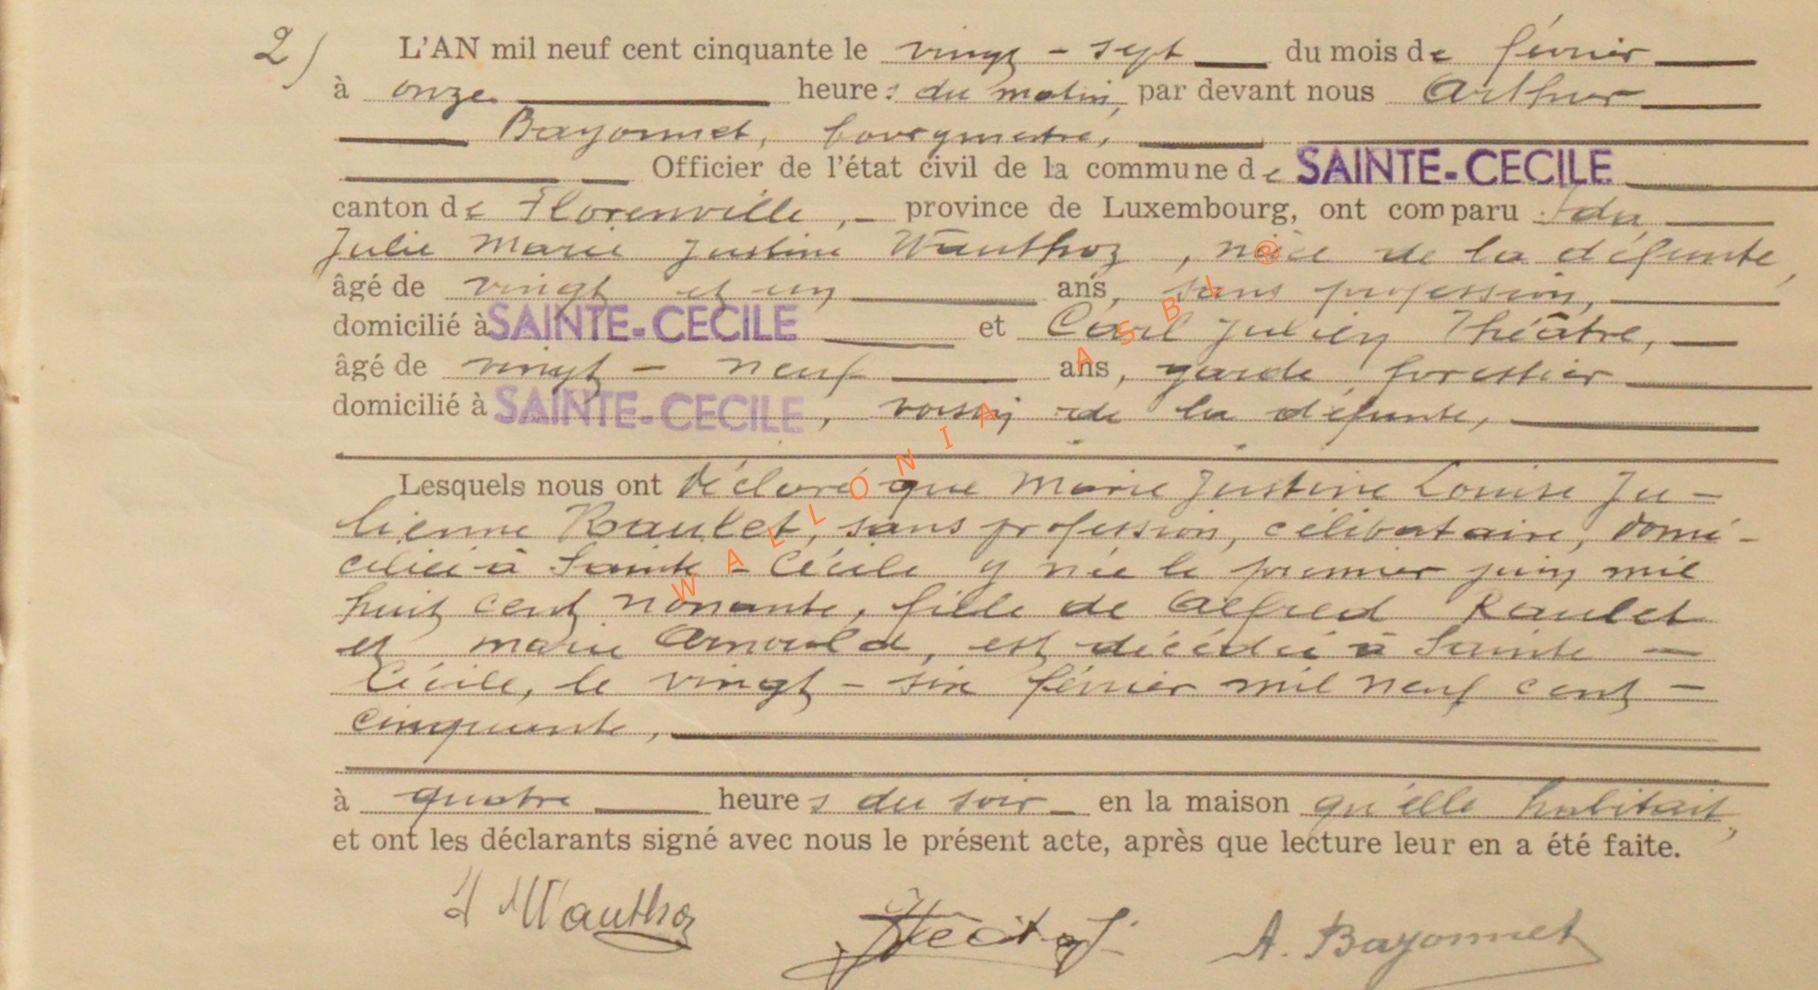 2) L'AN mil neuf cent cinquante le vingt-sept du mois de février
à onze heures du matin, par devant nous Arthur
Bayonnet, bourgmestre,
Officier de l'état civil de la commune de SAINTE-CECILE
canton de Florenville, province de Luxembourg, ont comparu Ida
Julie Marie Justine Wauthoz, nièce de la défunte,
âgé de vingt et un ans, sans profession,
domicilié à SAINTE-CECILE et Carl Julien Théâtre,
âgé de vingt-neuf ans, garde forestier
domicilié à SAINTE-CECILE, voisin de la défunte,
Lesquels nous ont déclaré que Marie Justine Louise Ju-
lienne Raulet, sans profession, célibataire, domi-
ciliée à Sainte-Cécile y née le premier juin mil
huit cent nonante, fille de Alfred Raulet
et Marie Arnould, est décédée à Sainte-
Cécile, le vingt-six février mil neuf cent-
cinquante,
à quatre heures du soir en la maison qu'elle habitait,
et ont les déclarants signé avec nous le présent acte, après que lecture leur en a été faite.
I Wauthoz A. Bayonnet
WALLONIA ASBL ®